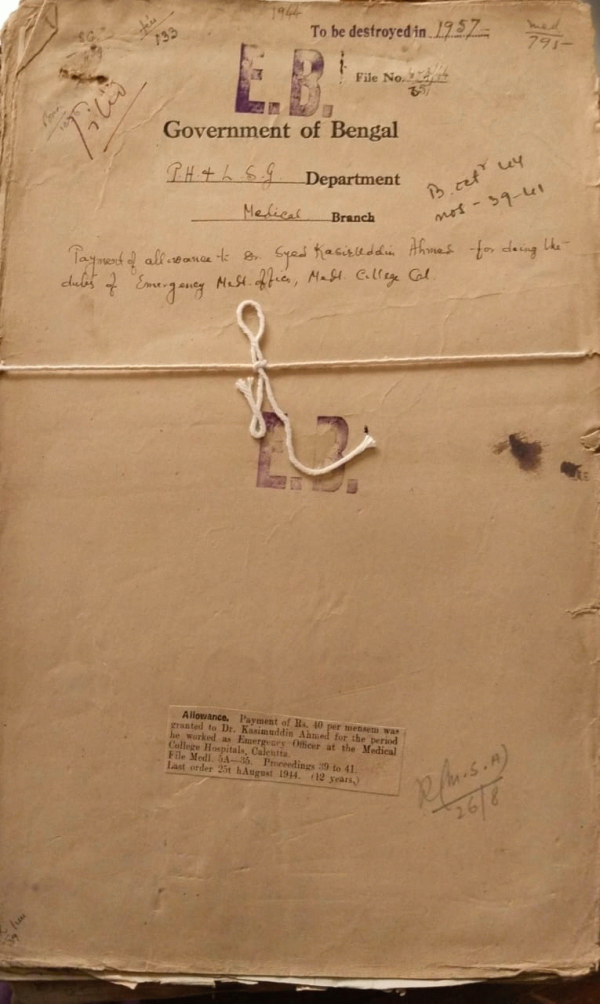 1944
To be destroyed in 1957
med
795
133
E.B.
File No.
filed
Government of Bengal
P H & L S. G. Department
B. Oct '44
nos - 39-41
Medical Branch
Payment of allowance to Dr. Syed Kasiruddin Ahmed for doing the
duties of Emergency Medl. Officer, Medl. College Cal.
E.B.
Allowance. Payment of Rs. 40 per mensem was
granted to Dr. Kasimuddin Ahmed for the period
he worked as Emergency Officer at the Medical
College Hospitals, Calcutta.
File Medl. 5A—35. Proceedings 39 to 41.
Last order 25t hAugust 1944. (12 years.)
R(M.S.A)
26/8